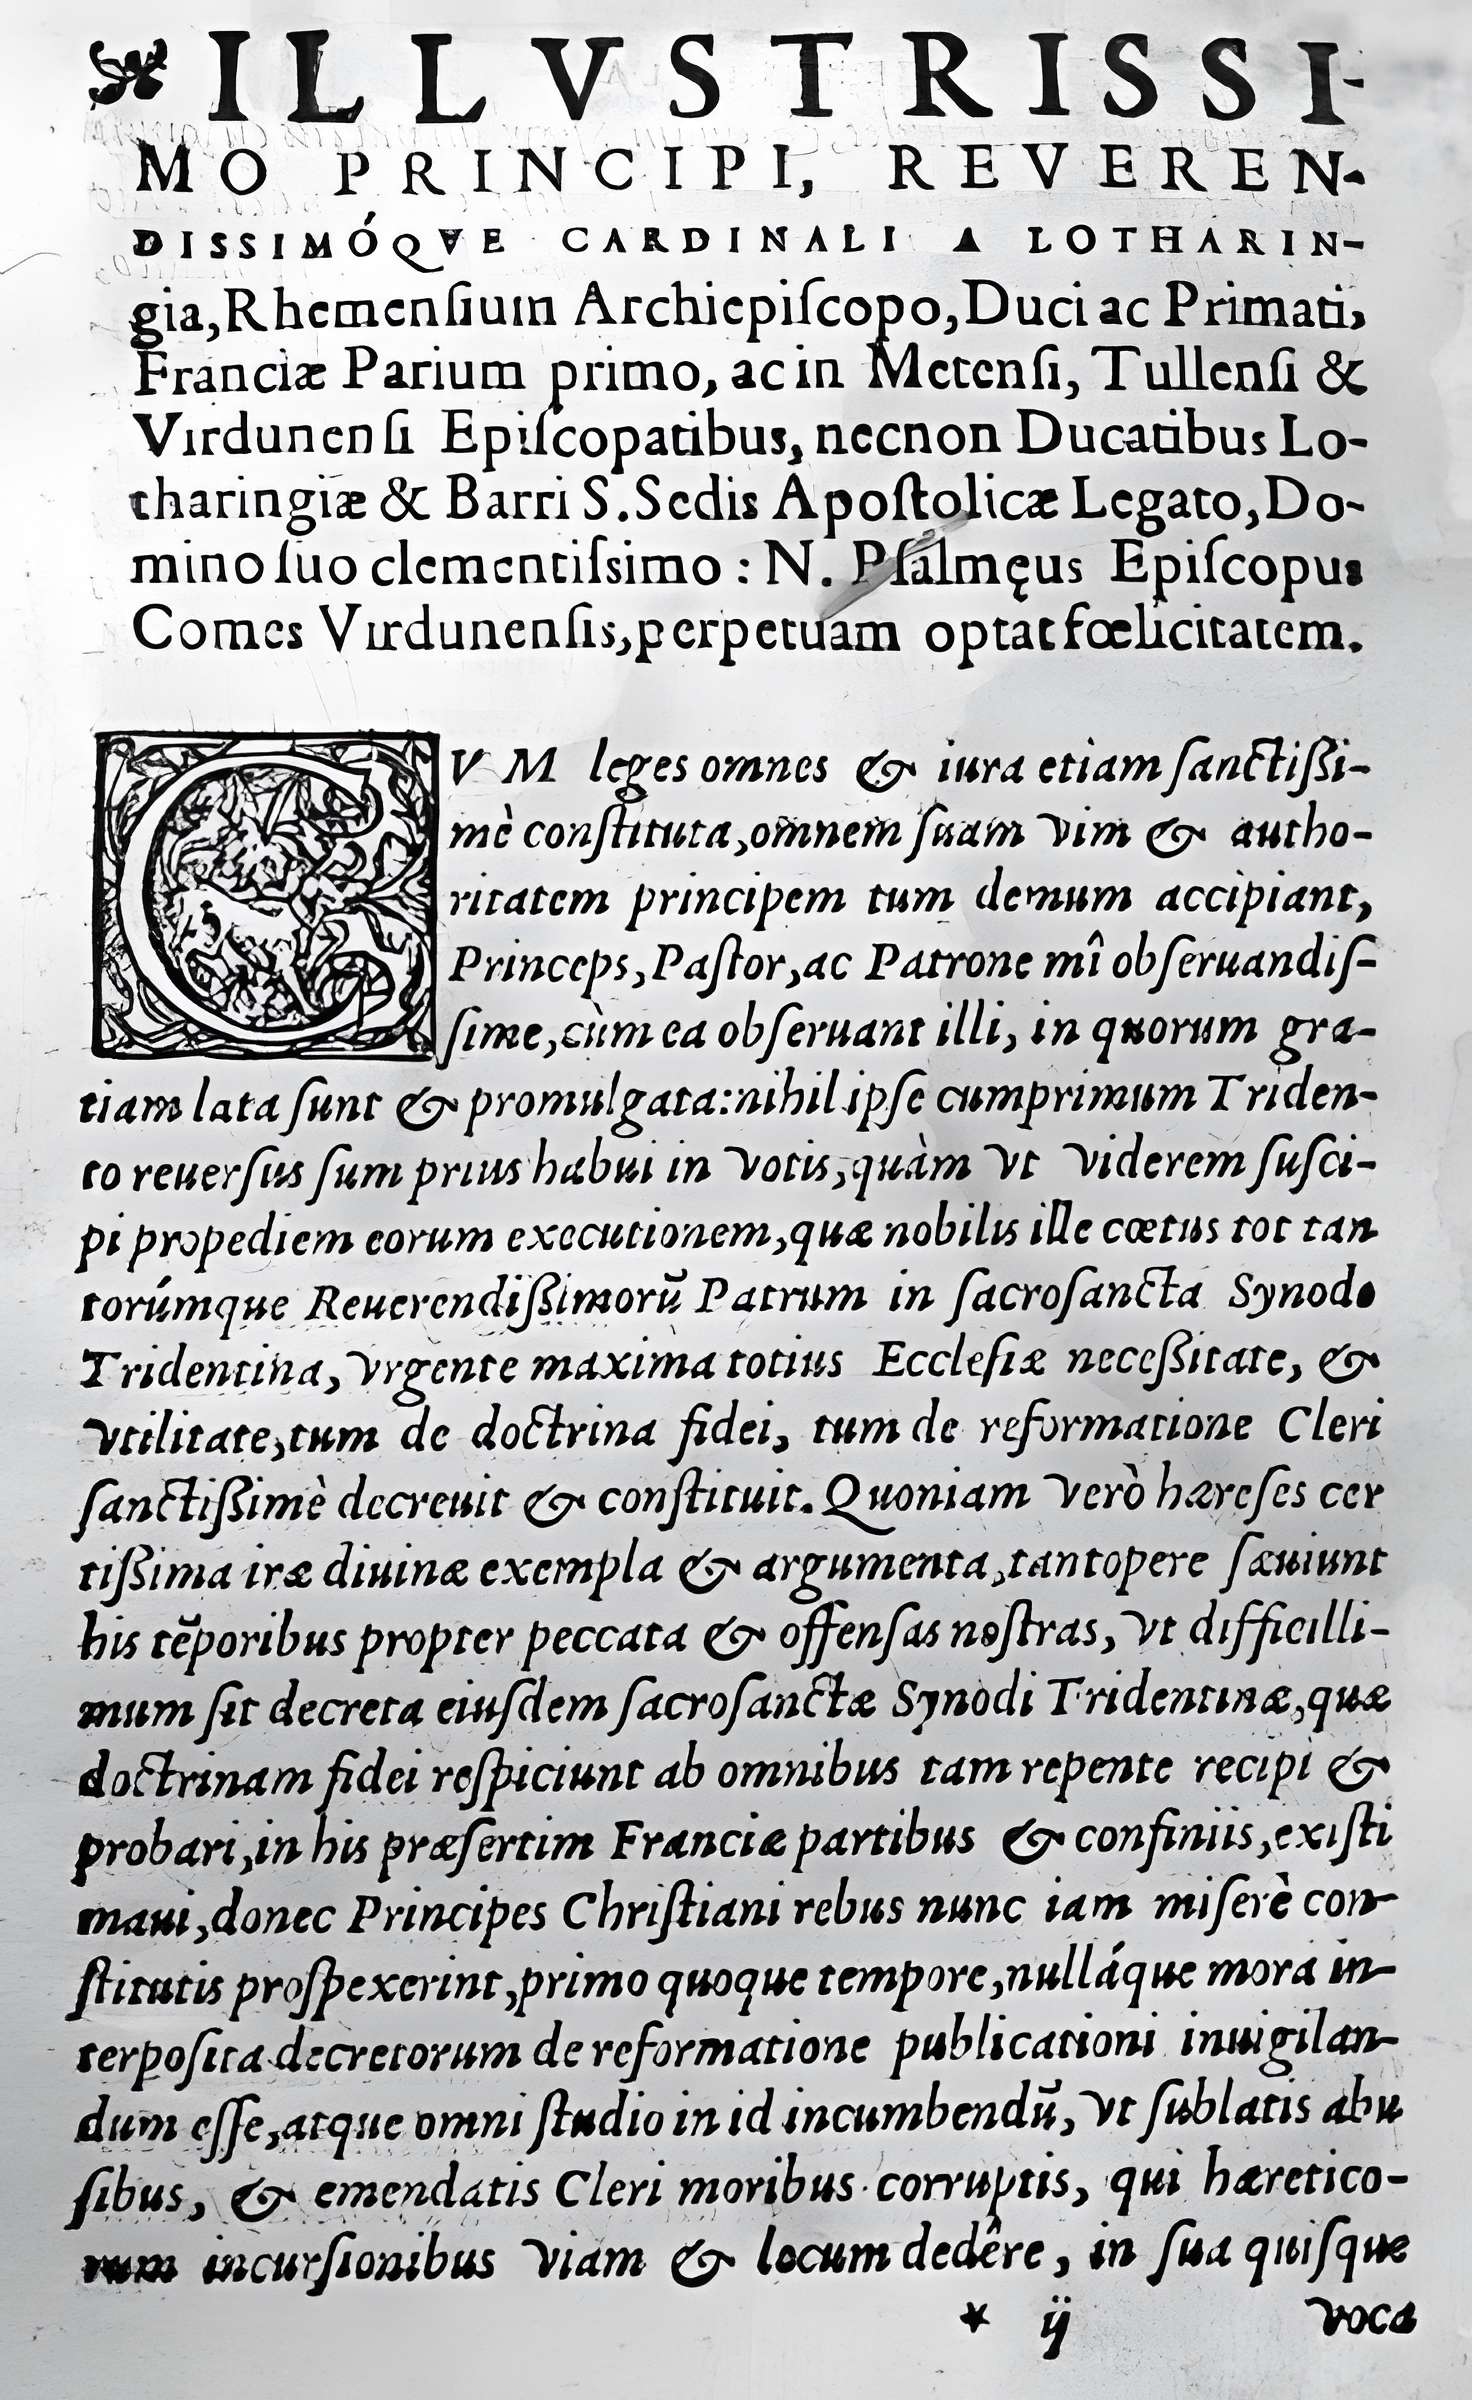 ILLVSTRISSI-
MO PRINCIPI, REVEREN-
DISSIMÓQVE CARDINALI A LOTHARIN-
gia, Rhemensium Archiepiſcopo, Duci ac Primati,
Franciæ Parium primo, ac in Metenſi, Tullenſi &
Virdunenſi Epiſcopatibus, necnon Ducatibus Lo-
tharingiæ & Barri S. Sedis Apoſtolicæ Legato, Do-
mino ſuo clementiſsimo : N. Pſalmęus Epiſcopus
Comes Virdunenſis, perpetuam optat fœlicitatem.
CVM leges omnes & iura etiam ſanctißi-
mè conſtituta, omnem ſuam vim & autho-
ritatem principem tum demum accipiant,
Princeps, Paſtor, ac Patrone mî obſeruandiſ-
ſime, cùm ea obſeruant illi, in quorum gra-
tiam lata ſunt & promulgata: nihil ipſe cumprimum Triden-
to reuerſus ſum prius habui in votis, quàm vt viderem ſuſci-
pi propediem eorum executionem, quæ nobilis ille cœtus tot tan
torúmque Reuerendißimorũ Patrum in ſacroſancta Synodo
Tridentina, vrgente maxima totius Eccleſiæ neceßitate, &
vtilitate, tum de doctrina fidei, tum de reformatione Cleri
ſanctißimè decreuit & conſtituit. Quoniam verò hæreſes cer
tißima iræ diuinæ exempla & argumenta, tantopere ſæuiunt
his tẽporibus propter peccata & offenſas noſtras, vt difficilli-
mum ſit decreta eiuſdem ſacroſanctæ Synodi Tridentinæ, quæ
doctrinam fidei reſpiciunt ab omnibus tam repente recipi &
probari, in his præſertim Franciæ partibus & confiniis, exiſti
maui, donec Principes Chriſtiani rebus nunc iam miſerè con-
ſtitutis proſpexerint, primo quoque tempore, nulláque mora in-
terpoſita decretorum de reformatione publicationi inuigilan-
dum eſſe, atque omni ſtudio in id incumbendũ, vt ſublatis abu
ſibus, & emendatis Cleri moribus corruptis, qui hæretico-
rum incurſionibus viam & locum dedêre, in ſua quiſque
* ij voca